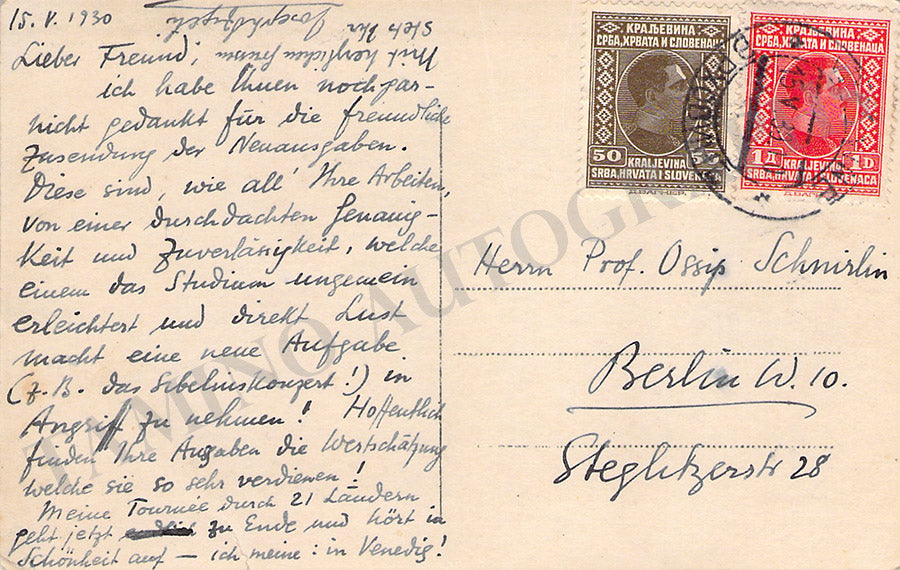 15. V. 1930
Lieber Freund,
ich habe Ihnen noch gar-
nicht gedankt für die freundliche
Zusendung der Neuausgaben.
Diese sind, wie all' Ihre Arbeiten,
von einer durchdachten Genauig-
keit und Zuverlässigkeit, welche
einem das Studium ungemein
erleichtert und direkt Lust
macht eine neue Aufgabe
(z. B. das Sibeliuskonzert!) in
Angriff zu nehmen! Hoffentlich
finden Ihre Ausgaben die Wertschätzung
welche sie so sehr verdienen!
Meine Tournée durch 21 Ländern
geht jetzt zu Ende und hört in
Schönheit auf — ich meine: in Venedig!
Mit herzlichem Gruss
stets Ihr
Joseph Szigeti
КРАЉЕВИНА
СРБА, ХРВАТА И СЛОВЕНАЦА
50 KRALJEVINA
SRBA, HRVATA I SLOVENACA
КРАЉЕВИНА
СРБА, ХРВАТА И СЛОВЕНАЦА
1Д KRALJEVINA 1D
SRBA, HRVATA I SLOVENACA
Herrn Prof. Ossip Schnirlin
Berlin W. 10.
Steglitzerstr 28
TAMINO AUTOGRAPHS